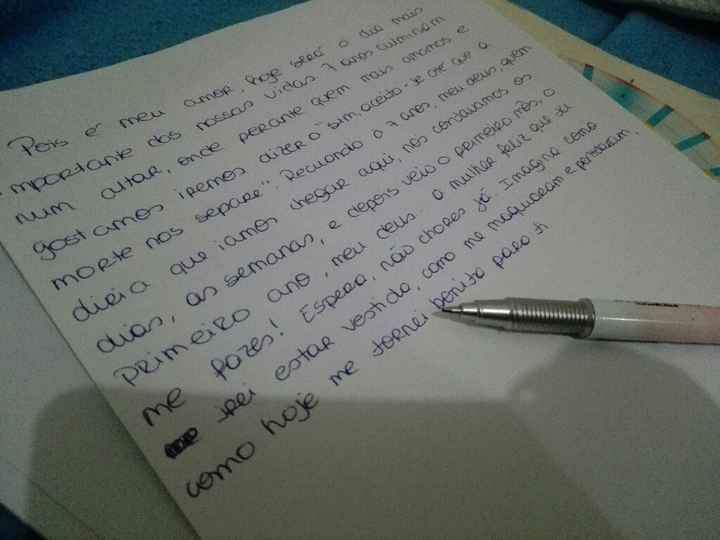 Pois é meu amor, hoje será o dia mais
importante das nossas vidas. 7 anos culminam
num altar, onde perante quem mais amamos e
gostamos iremos dizer o "sim, aceito. Se até que a
morte nos separe". Recuando a 7 anos, meu deus, quem
diria que iamos chegar aqui, nós contavamos os
dias, as semanas, e depois veio o primeiro mês, o
primeiro ano, meu deus. a mulher feliz que tu
me fazes! Espera, não chores já. Imagina como
irei estar vestida, como me maquiaram e pentearam,
como hoje me tornei bonita para ti